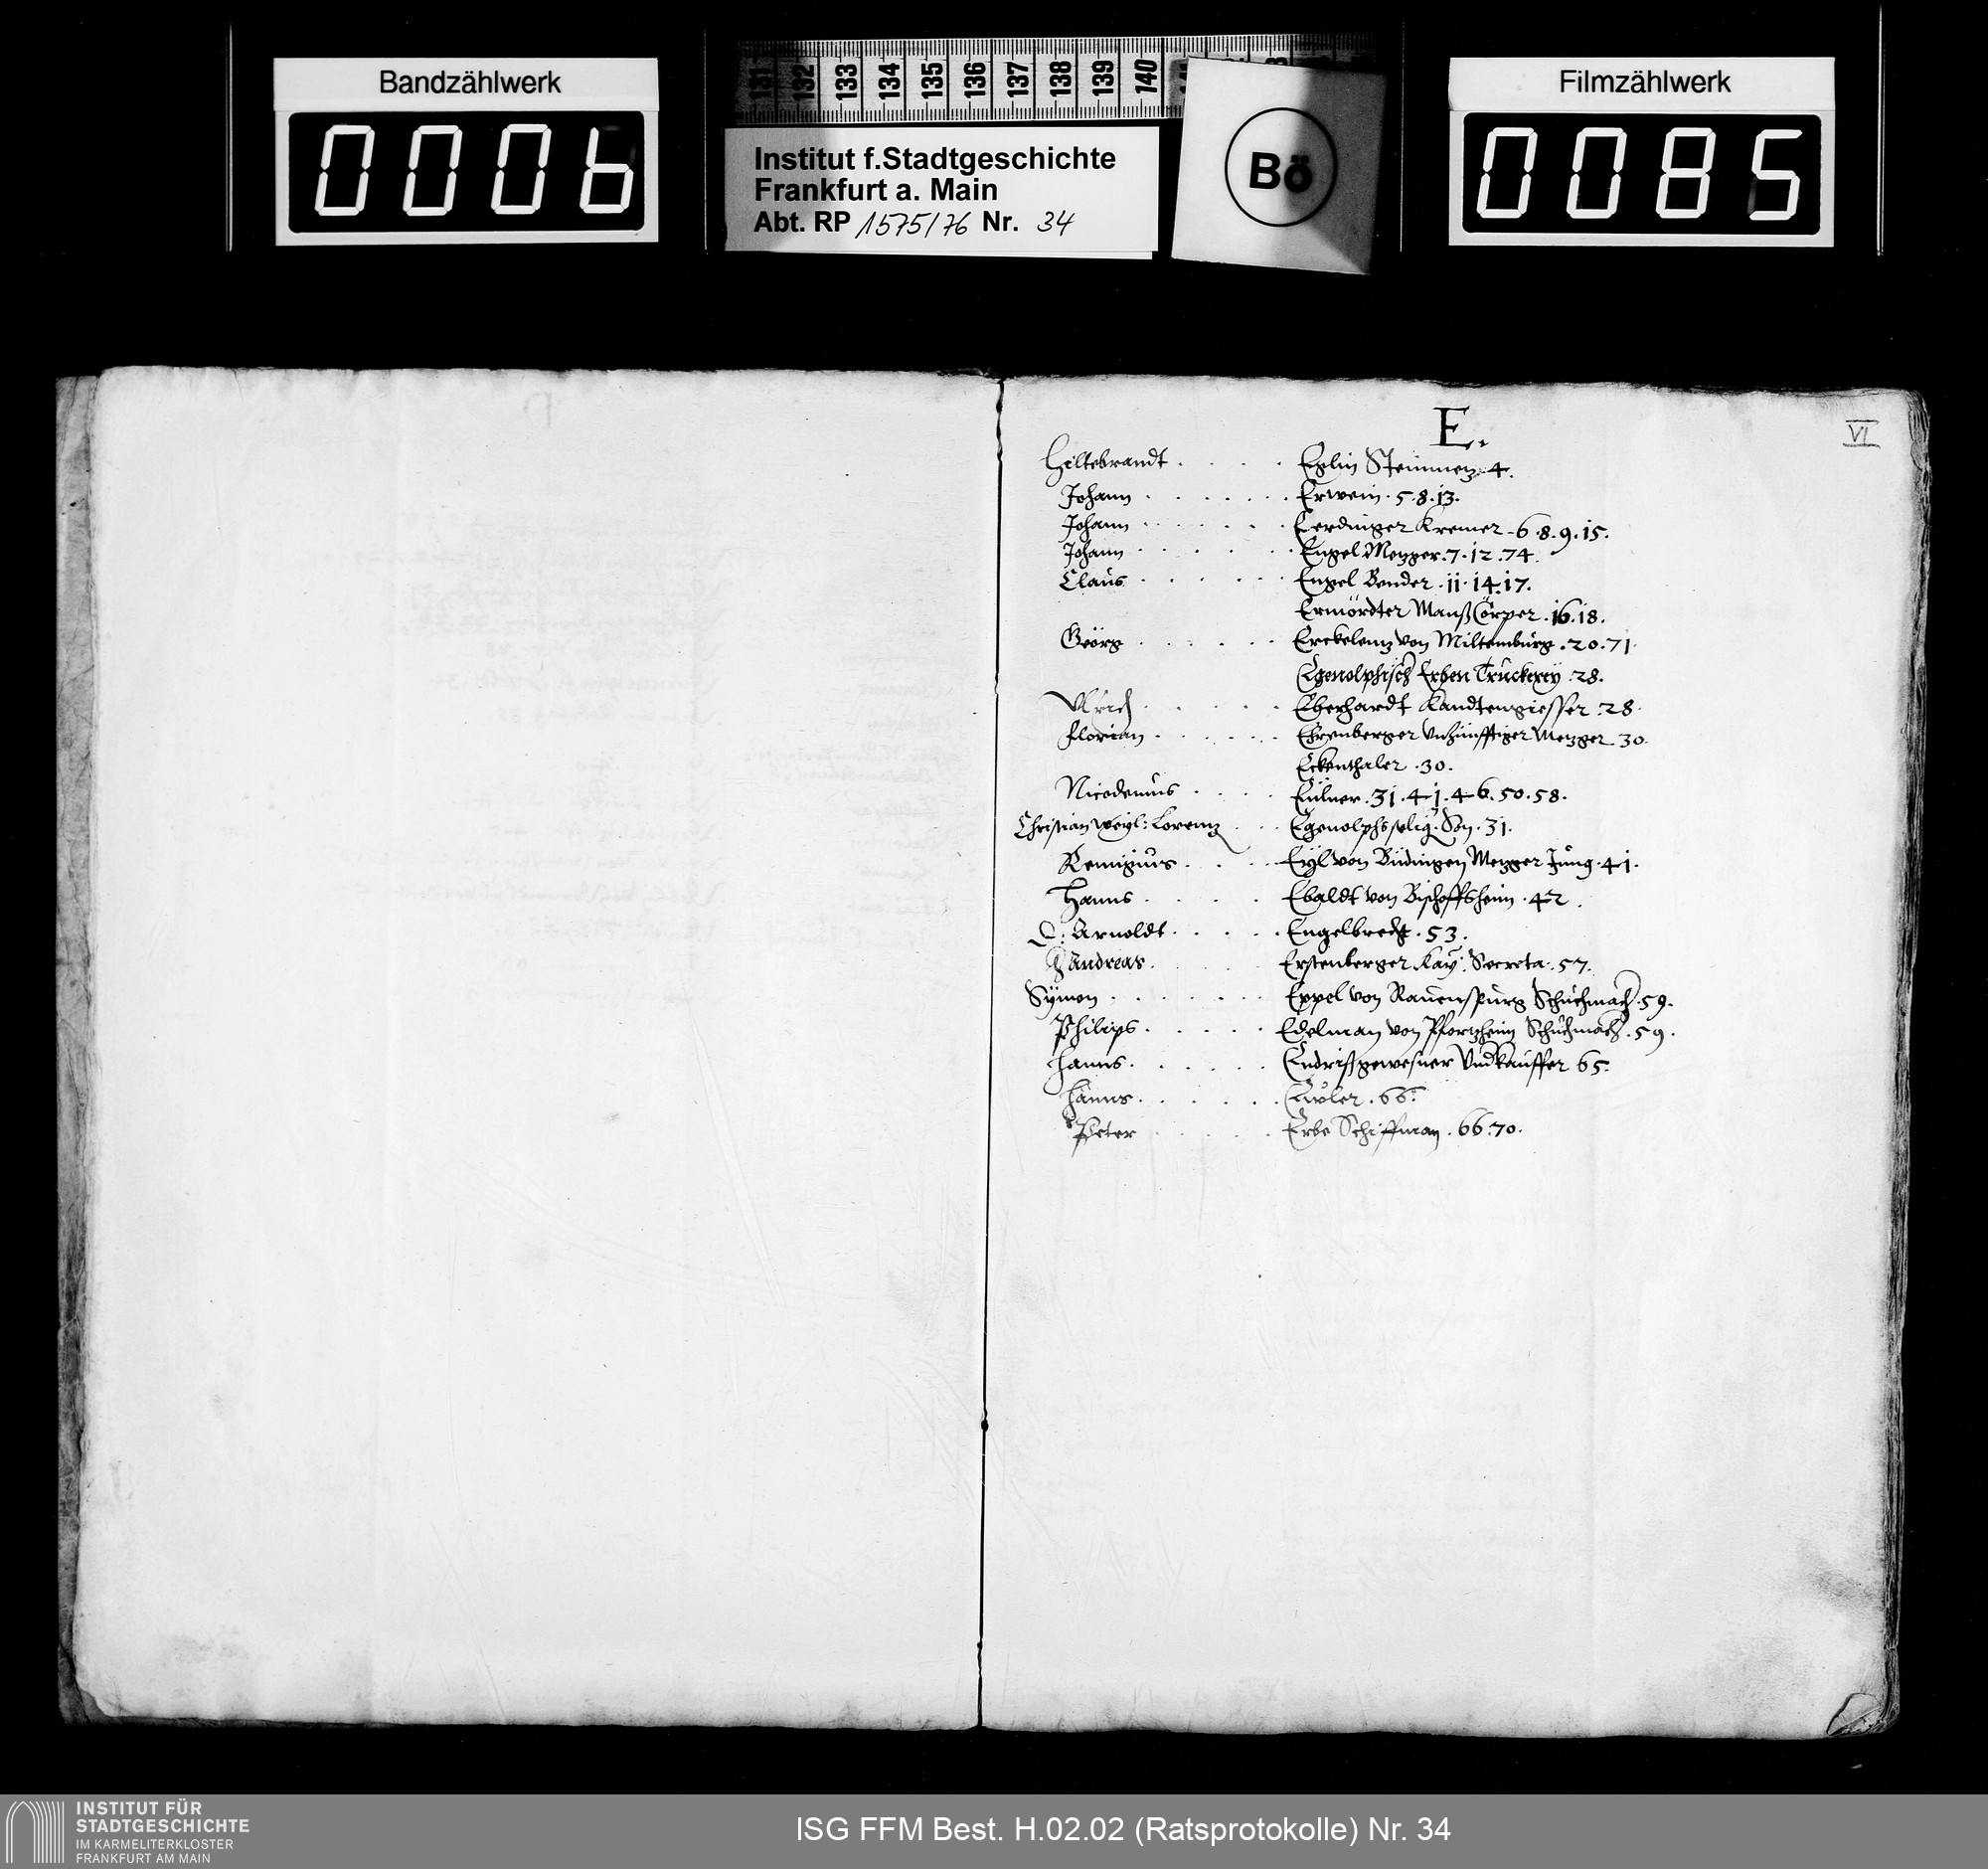 Bandzählwerk
0006
131 132 133 134 135 136 137 138 139 140
Institut f.Stadtgeschichte
Frankfurt a. Main
Abt. RP 1575/76 Nr. 34
Bö
Filmzählwerk
0085
VI
E.
Hiltebrandt . . . . Eglin Steinmez. 4.
Johann . . . . . . . Erwein. 5. 8. 13.
Johann . . . . . . Kremer. 6. 8. 9. 15.
Johann . . . . . . Engel Metzger. 7. 12. 74.
Claus . . . . . . Engel Bender. 11. 14. 17.
Ermördter Manß Cörper. 16. 18.
Geörg . . . . . . Erckelenz von Miltenburg. 20. 71.
Egenolphisch Erben Truckerey. 28.
Ulrich . . . . . Eberhardt Kandtengiesser. 28.
Florian . . . . . . Ehrenberger Unzünfftiger Metzger. 30.
Eckenthaler. 30.
Nicodemus . . . . Eulner. 31. 41. 46. 50. 58.
Christian weyl: Lorentz . . . Egenolphs selig. Son. 31.
Remigius . . . . Eyl von Büdingen Metzger Jung. 41.
Hanns . . . . . Ebaldt von Bischoffsheim. 42.
D: Arnoldt . . . . . Engelbrecht. 53.
Andreas . . . . . Erstenberger Kay: Secreta: 57.
Symon . . . . . . . Eppel von Rauenspurg Schuchmach. 59.
Philips . . . . . Edelman von Pfortzheim Schuchmach. 59.
Hanns . . . . . . Endriss gewesner Undkauffer 65.
Hanns . . . . . . 66.
Peter . . . . . Erbe Schiffman. 66. 70.
INSTITUT FÜR
STADTGESCHICHTE
IM KARMELITERKLOSTER
FRANKFURT AM MAIN
ISG FFM Best. H.02.02 (Ratsprotokolle) Nr. 34